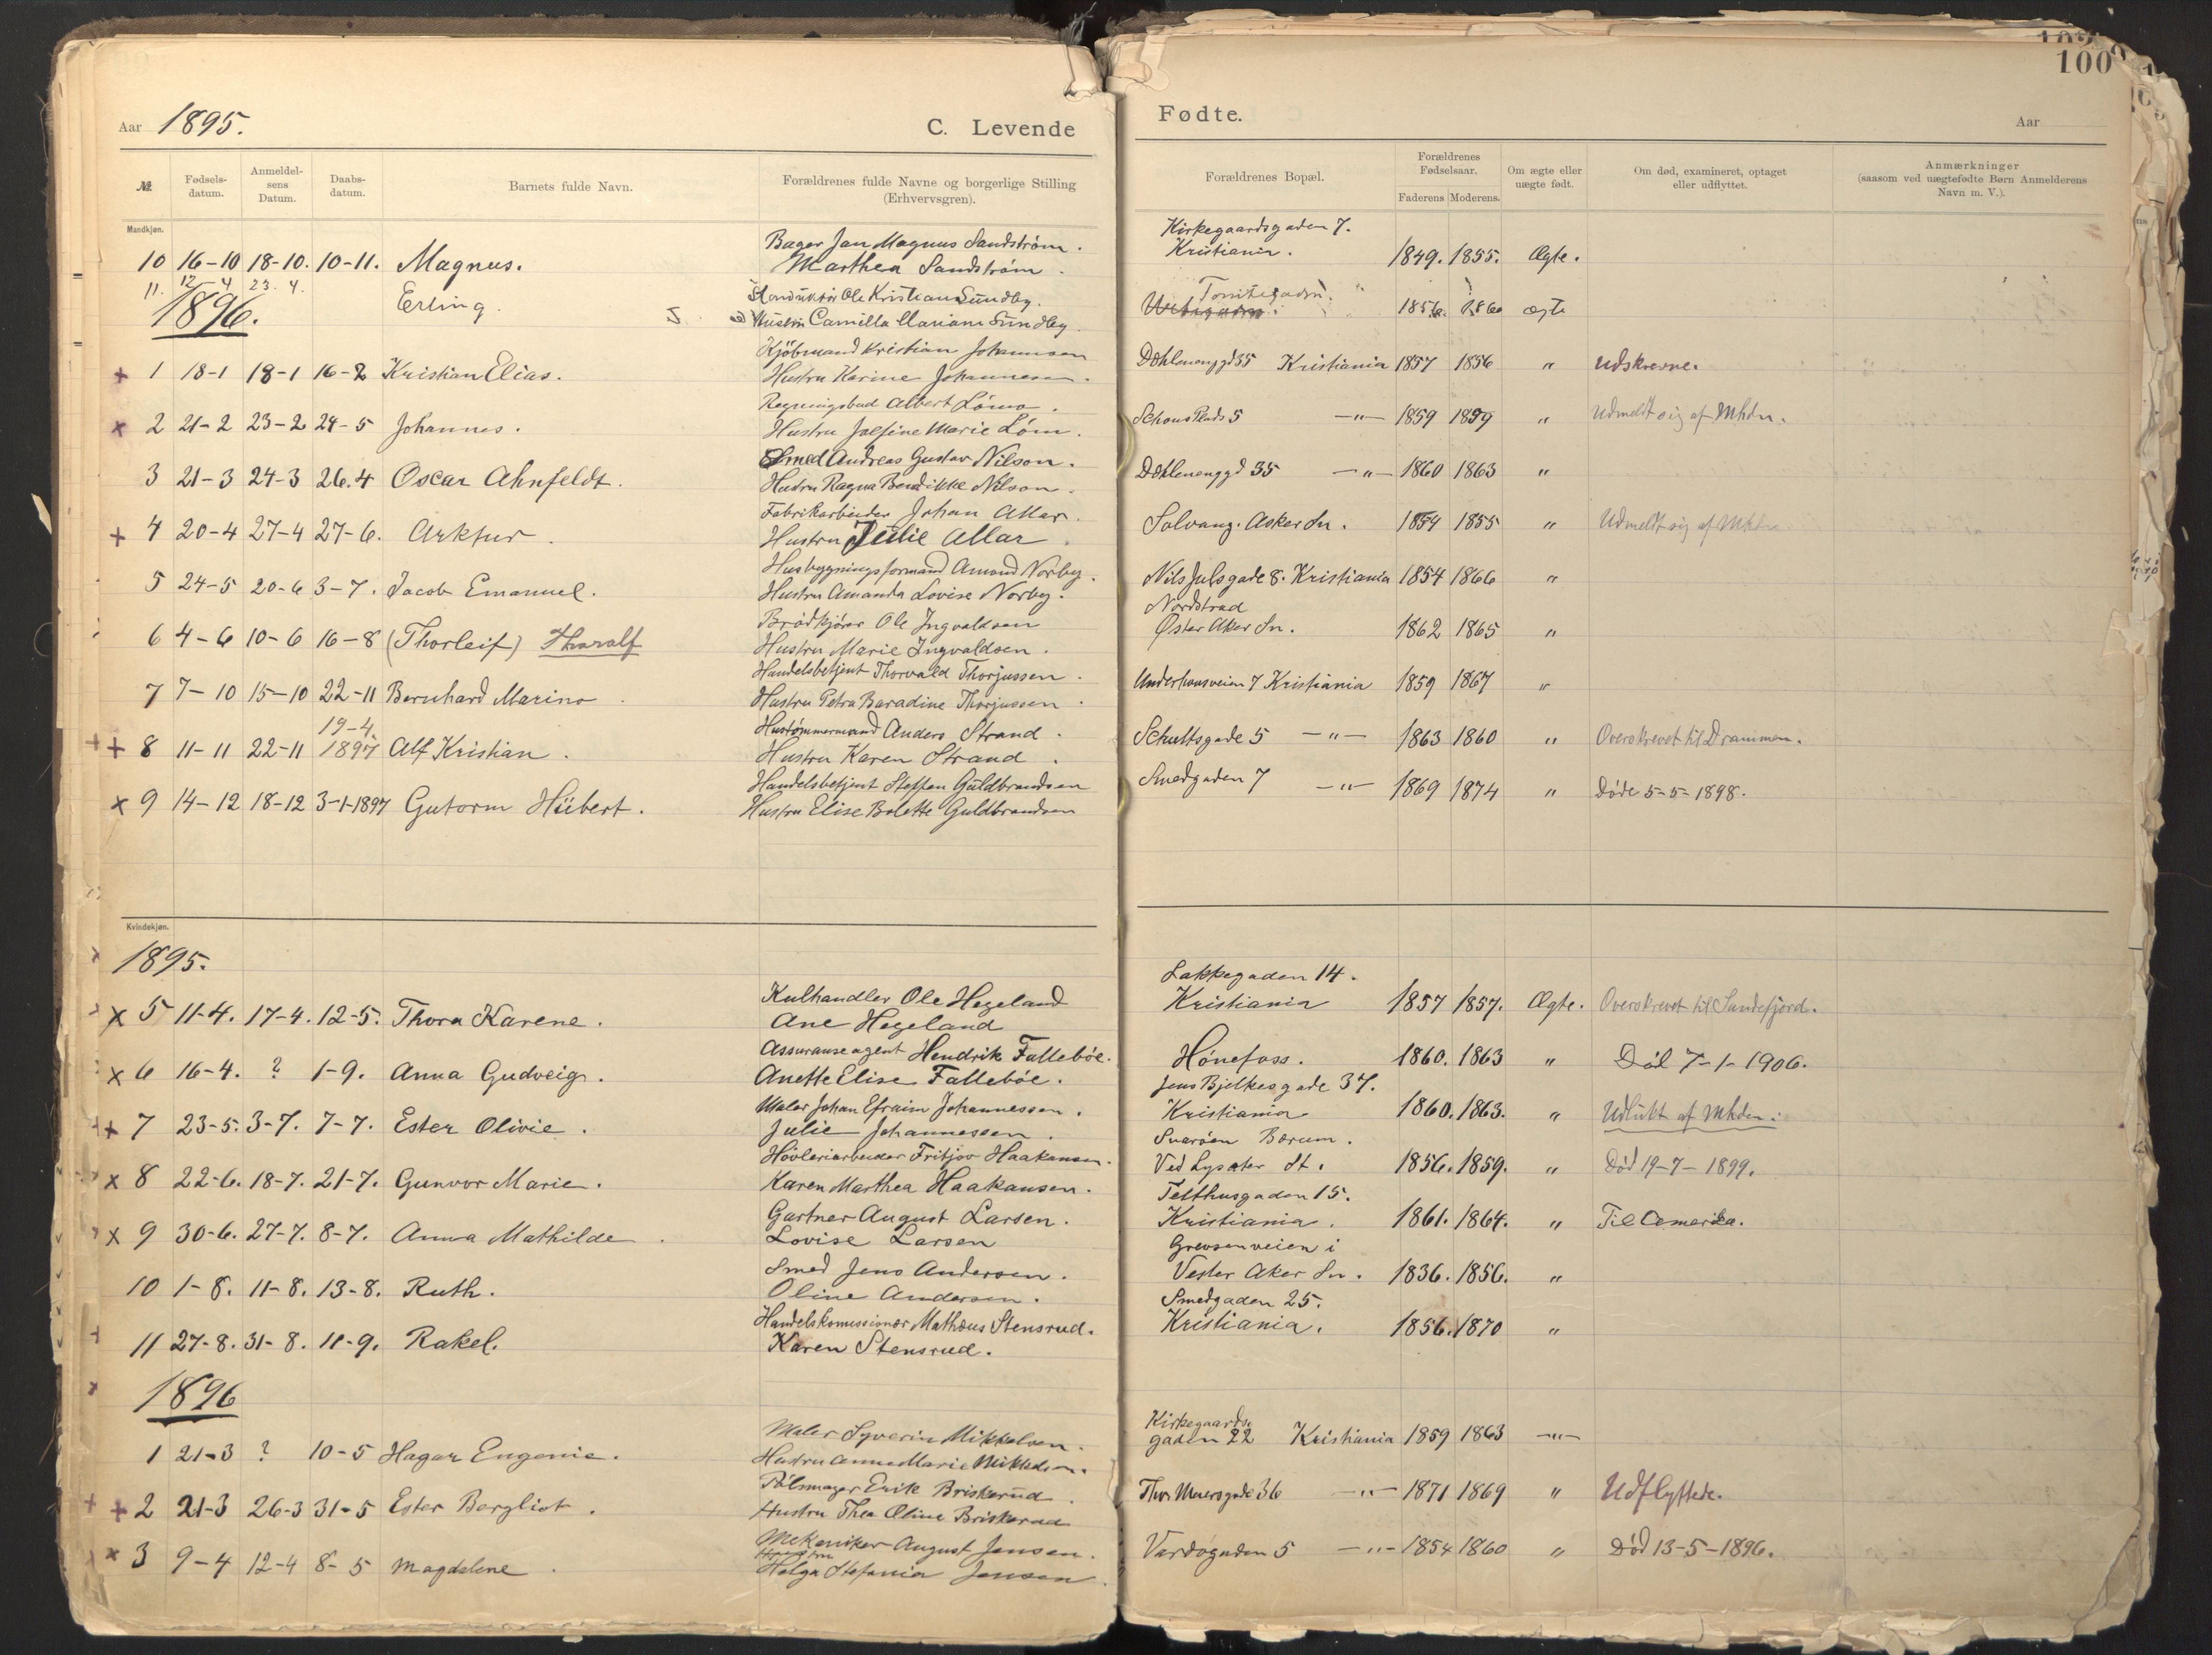 100
Aar 1895. C. Levende Fødte. Aar
№ Fødsels-datum. Anmeldel-sens Datum. Daabs-datum. Barnets fulde Navn. Forældrenes fulde Navne og borgerlige Stilling (Erhvervsgren). Forældrenes Bopæl. Forældrenes Fødselsaar. Faderens Moderens. Om ægte eller uægte født. Om død, examineret, optaget eller udflyttet. Anmærkninger (saasom ved uægtefødte Børn Anmelderens Navn m. V.).
Mandkjøn.
Bager Jan Magnus Sandström. Kirkegaardsgaden 7.
10 16-10 18-10. 10-11. Magnus. Marthea Sandström. Kristiania. 1849. 1855. Ægte.
11. 12-4 23.4. Erling. Ole Kristian Sundby.
1896. Hustru Camilla Mariane Sundby. ægte
Kjöbmand Kristian Johannesen
+ 1 18-1 18-1 16-2 Kristian Elias. Hustru Karine Johannesen. Dæhlenenggd 35 Kristiania 1857 1856 " Udskrevne.
Regningsbud Albert Lömo.
x 2 21-2 23-2 24-5 Johannes. Hustru Josefine Marie Löm. Schous Plads 5 —"— 1859 1859 " Udmeldt sig af Mhdn.
Smed Andreas Gustav Nilson.
3 21-3 24-3 26.4 Oscar Ahnfeldt. Hustru Ragna Bendikke Nilson. Dæhlenenggd 35 —"— 1860 1863 "
Fabrikarbeider Johan Allar.
+ 4 20-4 27-4 27-6. Arktur. Hustru Julie Allar. Solvang. Asker Sn. 1854 1855 " Udmeldt sig af Mhdn
Husbygningsformand Amund Norby.
5 24-5 20-6 3-7. Jacob Emanuel. Hustru Amanda Lovise Norby. Nils Julsgade 8. Kristiania 1854 1866 "
Brödkjörer Ole Ingvaldsen Nordstrad
6 4-6 10-6 16-8 (Thorleif) Tharalf Hustru Marie Ingvaldsen. Øster Aker Sn. 1862 1865 "
Handelsbetjent Thorvald Thorjussen.
7 7-10 15-10 22-11 Bernhard Marino. Hustru Petra Baradine Thorjussen. Underhausveien 7 Kristiania 1859 1867 "
19-4. Hustömmermand Anders Strand.
+ + 8 11-11 22-11 1897 Alf Kristian. Hustru Karen Strand. Schultsgade 5 —"— 1863 1860 " Overskrevet til Drammen.
Handelsbetjent Steffen Guldbrandsen
x 9 14-12 18-12 3-1-1897 Gutorm Hübert. Hustru Elise Bolette Guldbrandsen Smedgaden 7 —"— 1869 1874 " Døde 5-5-1898.
Kvindekjøn.
1895.
Kulhandler Ole Hegeland Lakkegaden 14.
x 5 11-4. 17-4. 12-5. Thora Karene. Ane Hegeland Kristiania 1857 1857. Ægte. Overskrevet til Sandefjord.
Assuranseagent Hendrik Falleböe.
x 6 16-4. ? 1-9. Anna Gudveig. Anette Elise Falleböe. Hönefoss. 1860. 1863 " Död 7-1-1906.
Maler Johan Efraim Johannessen. Jens Bjelkesgade 37.
+ 7 23-5. 3-7. 7-7. Ester Olivie. Julie Johannessen. Kristiania 1860. 1863. " Udlukt af Mhden.
Hövleriarbeider Fritjov Haakansen. Snaröen Bærum.
x 8 22-6. 18-7. 21-7. Gunvor Marie. Karen Marthea Haakansen. Ved Lysaker St. 1856. 1859. " Död 19-7-1899.
Gartner August Larsen. Telthusgaden 15.
x 9 30-6. 27-7. 8-7. Anna Mathilde. Lovise Larsen Kristiania. 1861. 1864. " Til Amerika.
Smed Jens Andersen. Grevsenveien i
10 1-8. 11-8. 13-8. Ruth. Oline Andersen. Vester Aker Sn. 1836. 1856. "
Handelskomissionær Mathæus Stensrud. Smedgaden 25.
11 27-8. 31-8. 11-9. Rakel. Karen Stensrud. Kristiania. 1856. 1870 "
1896
Maler Syverin Mikkelsen. Kirkegaards-
1 21-3 ? 10-5 Hagar Eugenie. Hustru Anne Marie Mikkelsen. gaden 22 Kristiania 1859 1863 —"—
Pölsmager Erik Briskerud.
+ + 2 21-3 26-3 31-5 Ester Bergliot. Hustru Thea Oline Briskerud Thor Meiersgade 36 —"— 1871 1869 " Udflyttede.
Mekaniker August Jensen.
Hustru
x 3 9-4 12-4 8-5 Magdalene. Helga Stefania Jensen. Vardögaden 5 —"— 1854 1860 " Död 13-5-1896.